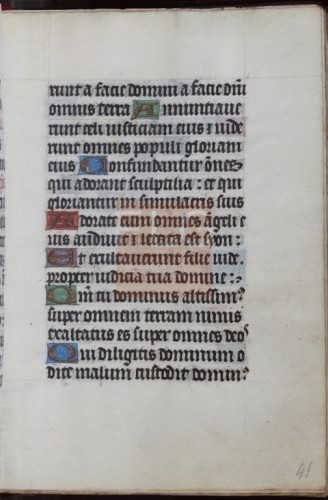 runt a facie domini a facie dn̄i
omnis terra Annunciaue
runt celi iusticiam eius ⁊ uide
runt omnes populi gloriam
eius Confundantur ōnes
qui adorant sculptilia : et qui
gloriantur in simulacris suis
Adorate eum omnes āgeli e
ius audiuit ⁊ letata est syon :
Et exultauerunt filie iude
propter iudicia tua domine :
Qm̄ tu dominus altissimꝰ
super omnem terram nimis
exaltatus es super omnes deos
Qui diligitis dominum o
dite malum custodit domin
41